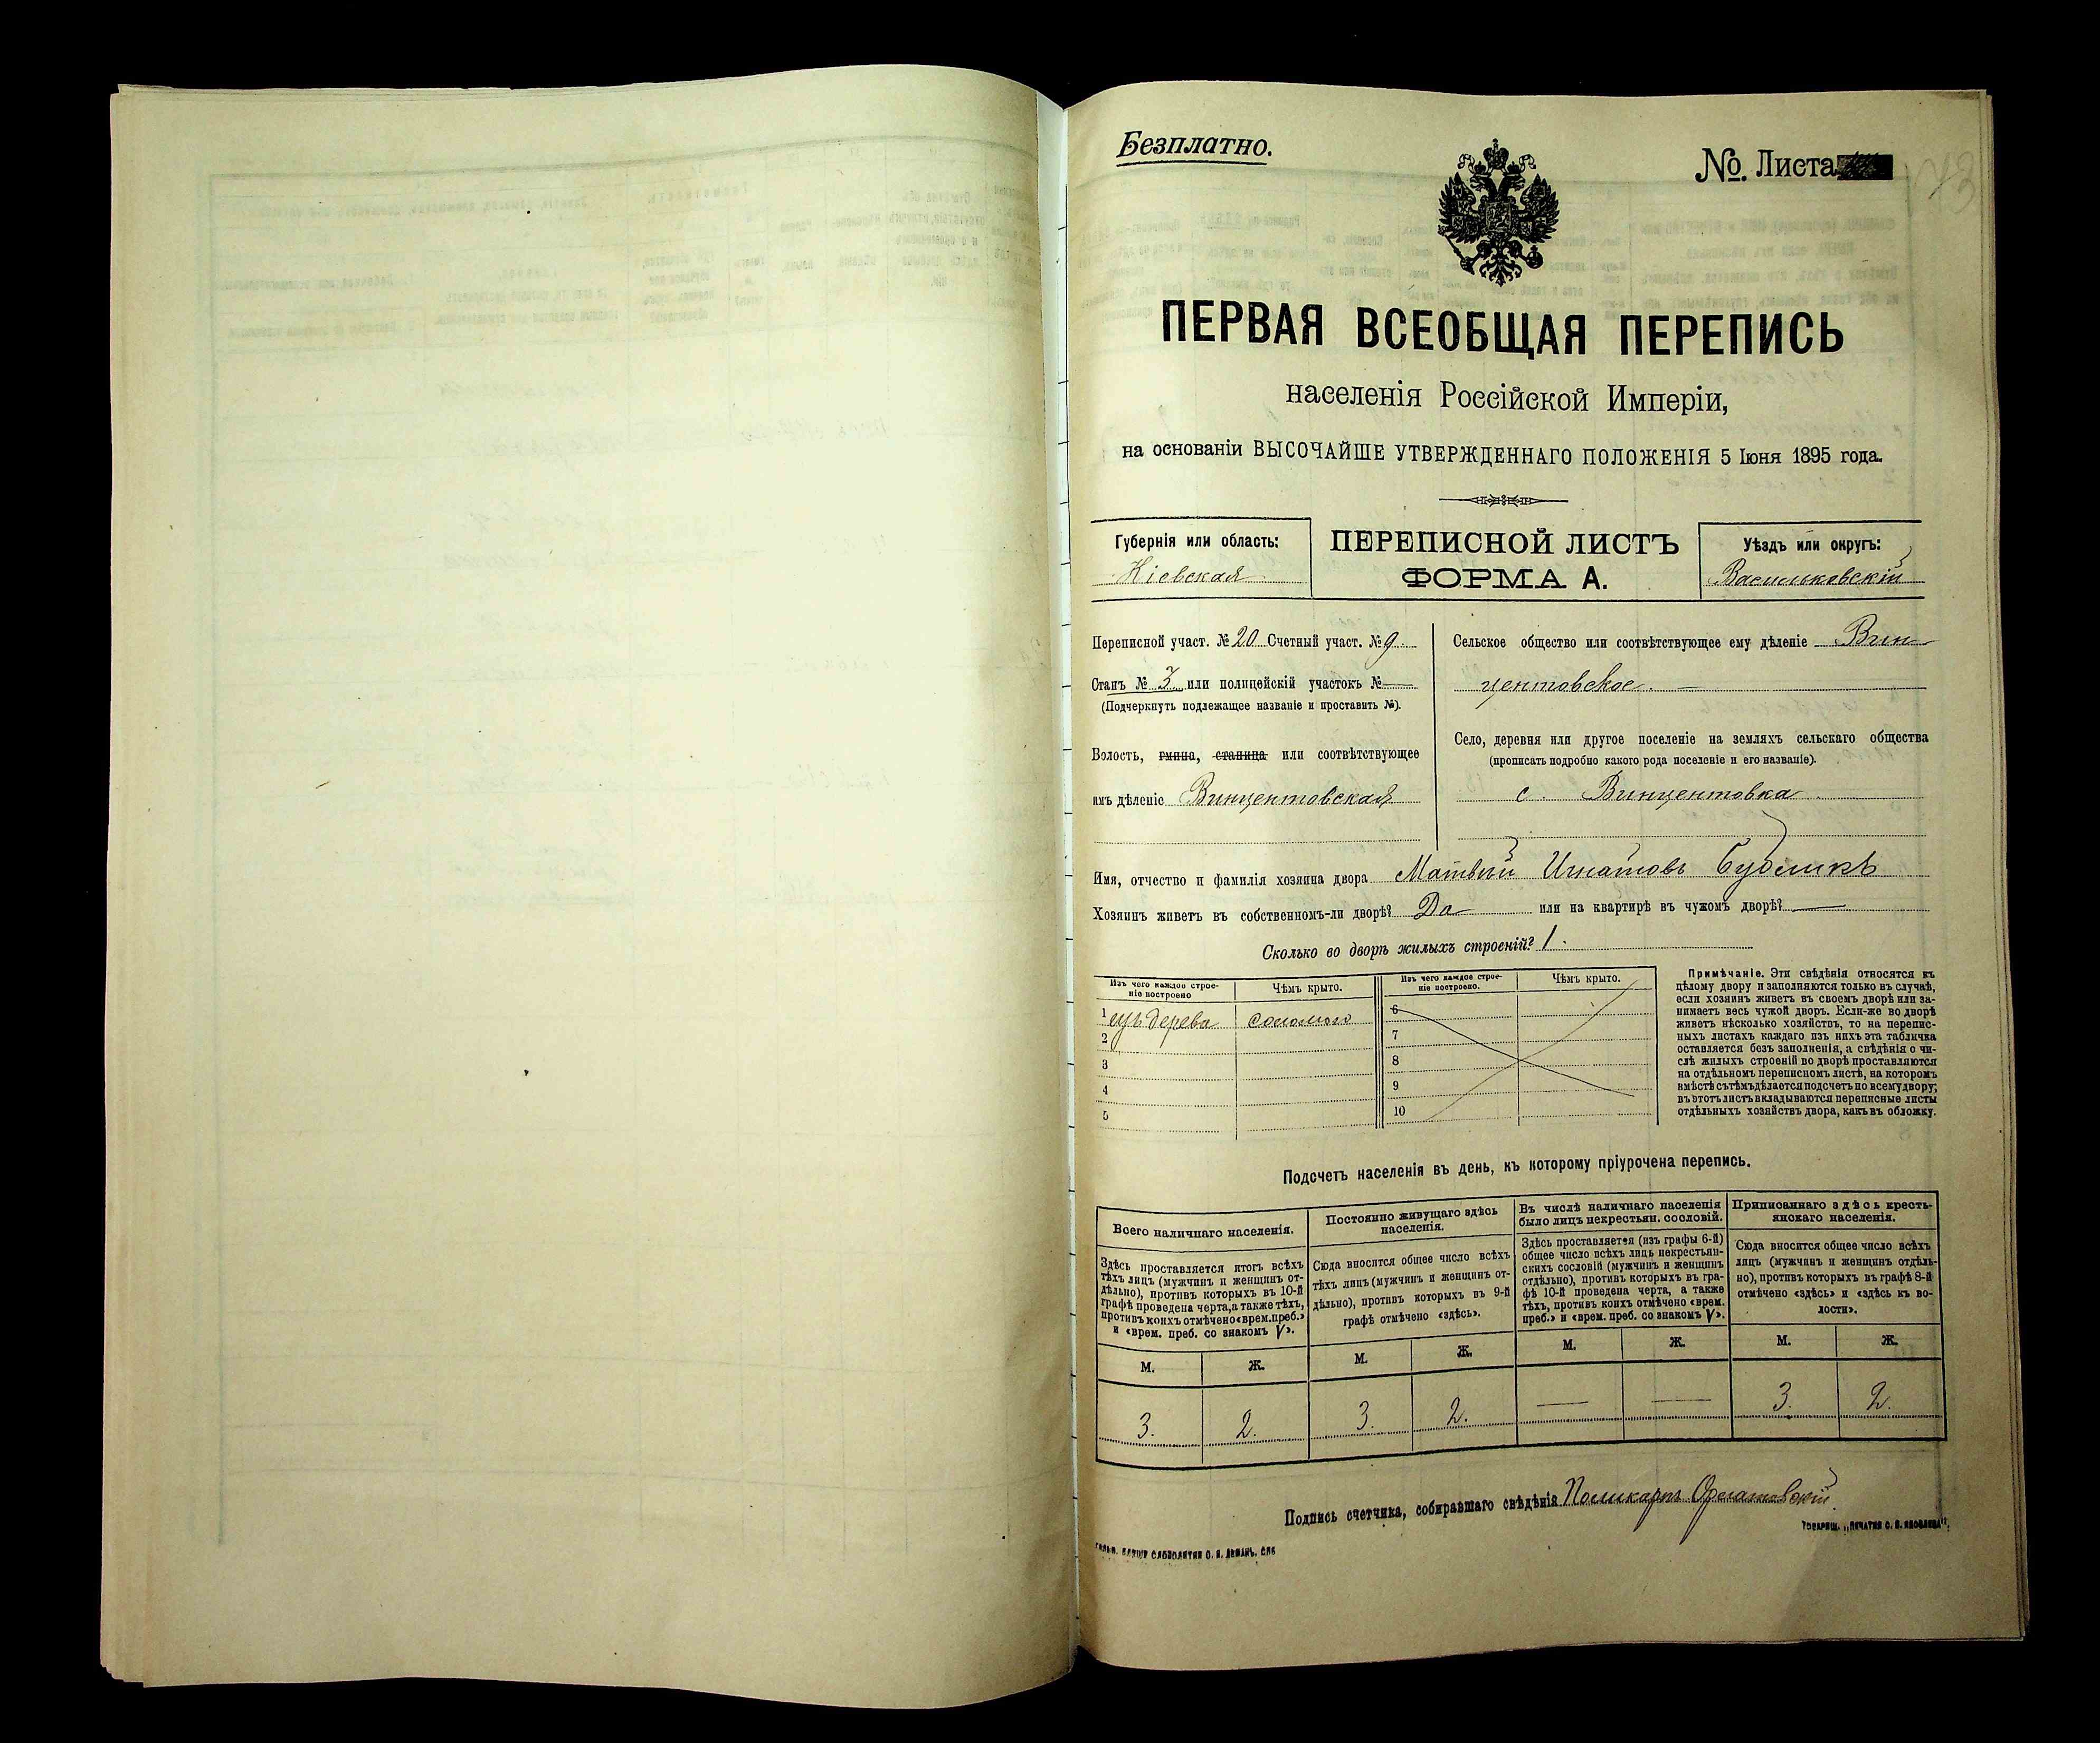 Безплатно.
№. Листа
73
ПЕРВАЯ ВСЕОБЩАЯ ПЕРЕПИСЬ
населенія Россійской Имперіи,
на основаніи ВЫСОЧАЙШЕ УТВЕРЖДЕННАГО ПОЛОЖЕНІЯ 5 Іюня 1895 года.
Губернія или область:
Кіевская
ПЕРЕПИСНОЙ ЛИСТЪ
ФОРМА А.
Уѣздъ или округъ:
Васильковскій
Переписной участ. № 20 Счетный участ. № 9.
Станъ № 3 или полицейскій участокъ № —
(Подчеркнуть подлежащее названіе и проставить №).
Волость, гмина, станица или соотвѣтствующее
имъ дѣленіе Винцентовская
Сельское общество или соотвѣтствующее ему дѣленіе Вин
центовское. —
Село, деревня или другое поселеніе на земляхъ сельскаго общества
(прописать подробно какого рода поселеніе и его названіе).
с. Винцентовка
Имя, отчество и фамилія хозяина двора Матвѣй Игнатовъ
Хозяинъ живетъ въ собственномъ-ли дворѣ? Да или на квартирѣ въ чужомъ дворѣ? —
Сколько во дворѣ жилыхъ строеній? 1.
Изъ чего каждое строе-
ніе построено
Чѣмъ крыто.
1 изъ дерева соломою
2
3
4
5
Изъ чего каждое строе-
ніе построено.
Чѣмъ крыто.
6
7
8
9
10
Примѣчаніе. Эти свѣдѣнія относятся къ
цѣлому двору и заполняются только въ случаѣ,
если хозяинъ живетъ въ своемъ дворѣ или за-
нимаетъ весь чужой дворъ. Если-же во дворѣ
живетъ нѣсколько хозяйствъ, то на перепис-
ныхъ листахъ каждаго изъ нихъ эта табличка
оставляется безъ заполненія, а свѣдѣнія о чи-
слѣ жилыхъ строеній во дворѣ проставляются
на отдѣльномъ переписномъ листѣ, на которомъ
вмѣстѣ съ тѣмъ дѣлается подсчетъ по всему двору;
въ этотъ листъ вкладываются переписные листы
отдѣльныхъ хозяйствъ двора, какъ въ обложку.
Подсчетъ населенія въ день, къ которому пріурочена перепись.
Всего наличнаго населенія.
Здѣсь проставляется итогъ всѣхъ
тѣхъ лицъ (мужчинъ и женщинъ от-
дѣльно), противъ которыхъ въ 10-й
графѣ проведена черта, а также тѣхъ,
противъ коихъ отмѣчено «врем. преб.»
и «врем. преб. со знакомъ V».
М. Ж.
3. 2.
Постоянно живущаго здѣсь
населенія.
Сюда вносится общее число всѣхъ
тѣхъ лицъ (мужчинъ и женщинъ от-
дѣльно), противъ которыхъ въ 9-й
графѣ отмѣчено «здѣсь».
М. Ж.
3. 2.
Въ числѣ наличнаго населенія
было лицъ некрестьян. сословій.
Здѣсь проставляется (изъ графы 6-й)
общее число всѣхъ лицъ некрестьян-
скихъ сословій (мужчинъ и женщинъ
отдѣльно), противъ которыхъ въ гра-
фѣ 10-й проведена черта, а также
тѣхъ, противъ коихъ отмѣчено «врем.
преб.» и «врем. преб. со знакомъ V».
М. Ж.
— —
Приписаннаго здѣсь кресть-
янскаго населенія.
Сюда вносится общее число всѣхъ
лицъ (мужчинъ и женщинъ отдѣль-
но), противъ которыхъ въ графѣ 8-й
отмѣчено «здѣсь» и «здѣсь къ во-
лости».
М. Ж.
3. 2.
Подпись счетчика, собиравшаго свѣдѣнія Поликарпъ
Товарищ. „Печатня С. П. Яковлева“.